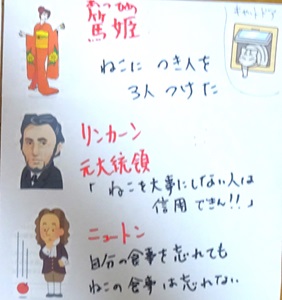 あつひめ
篤姫
キャットドア
ねこに つき人を
3人 つけた
リンカーン
元大統領
「ねこを大事にしない人は
信用できん!!」
ニュートン
自分の食事を忘れても
ねこの食事は忘れない